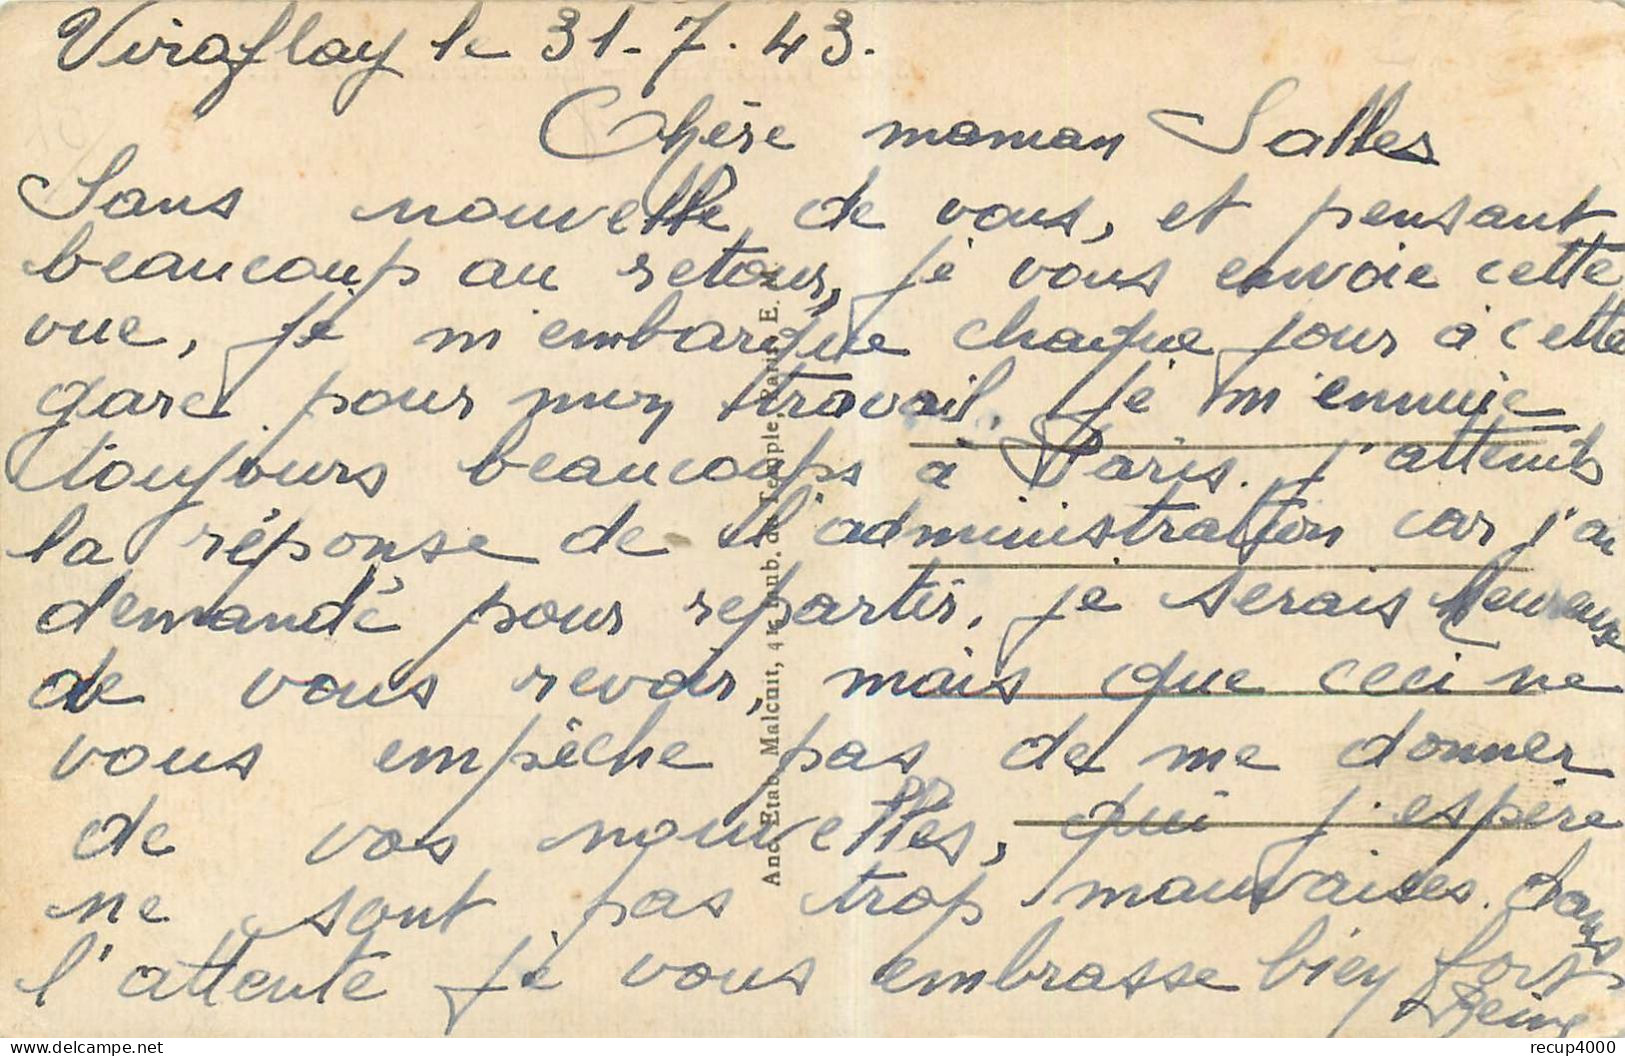 Viroflay le 31-7.43.
Chère maman Salles
Sans nouvelle de vous, et pensant
beaucoup au retour, je vous envoie cette
vue, je m'embarque chaque jour à cette
gare pour mon travail. je m'ennuie
toujours beaucoups à Paris. j'attends
la réponse de l'administration car j'ai
demandé pour repartir. je serais heureuse
de vous revoir, mais que ceci ne
vous empêche pas de me donner
de vos nouvelles, qui j'espère
ne sont pas trop mauvaises. Dans
l'attente je vous embrasse bien fort
Reine
Anc. Etab. Malcuit, 41 Faub. du Temple, Paris. E.
recup4000